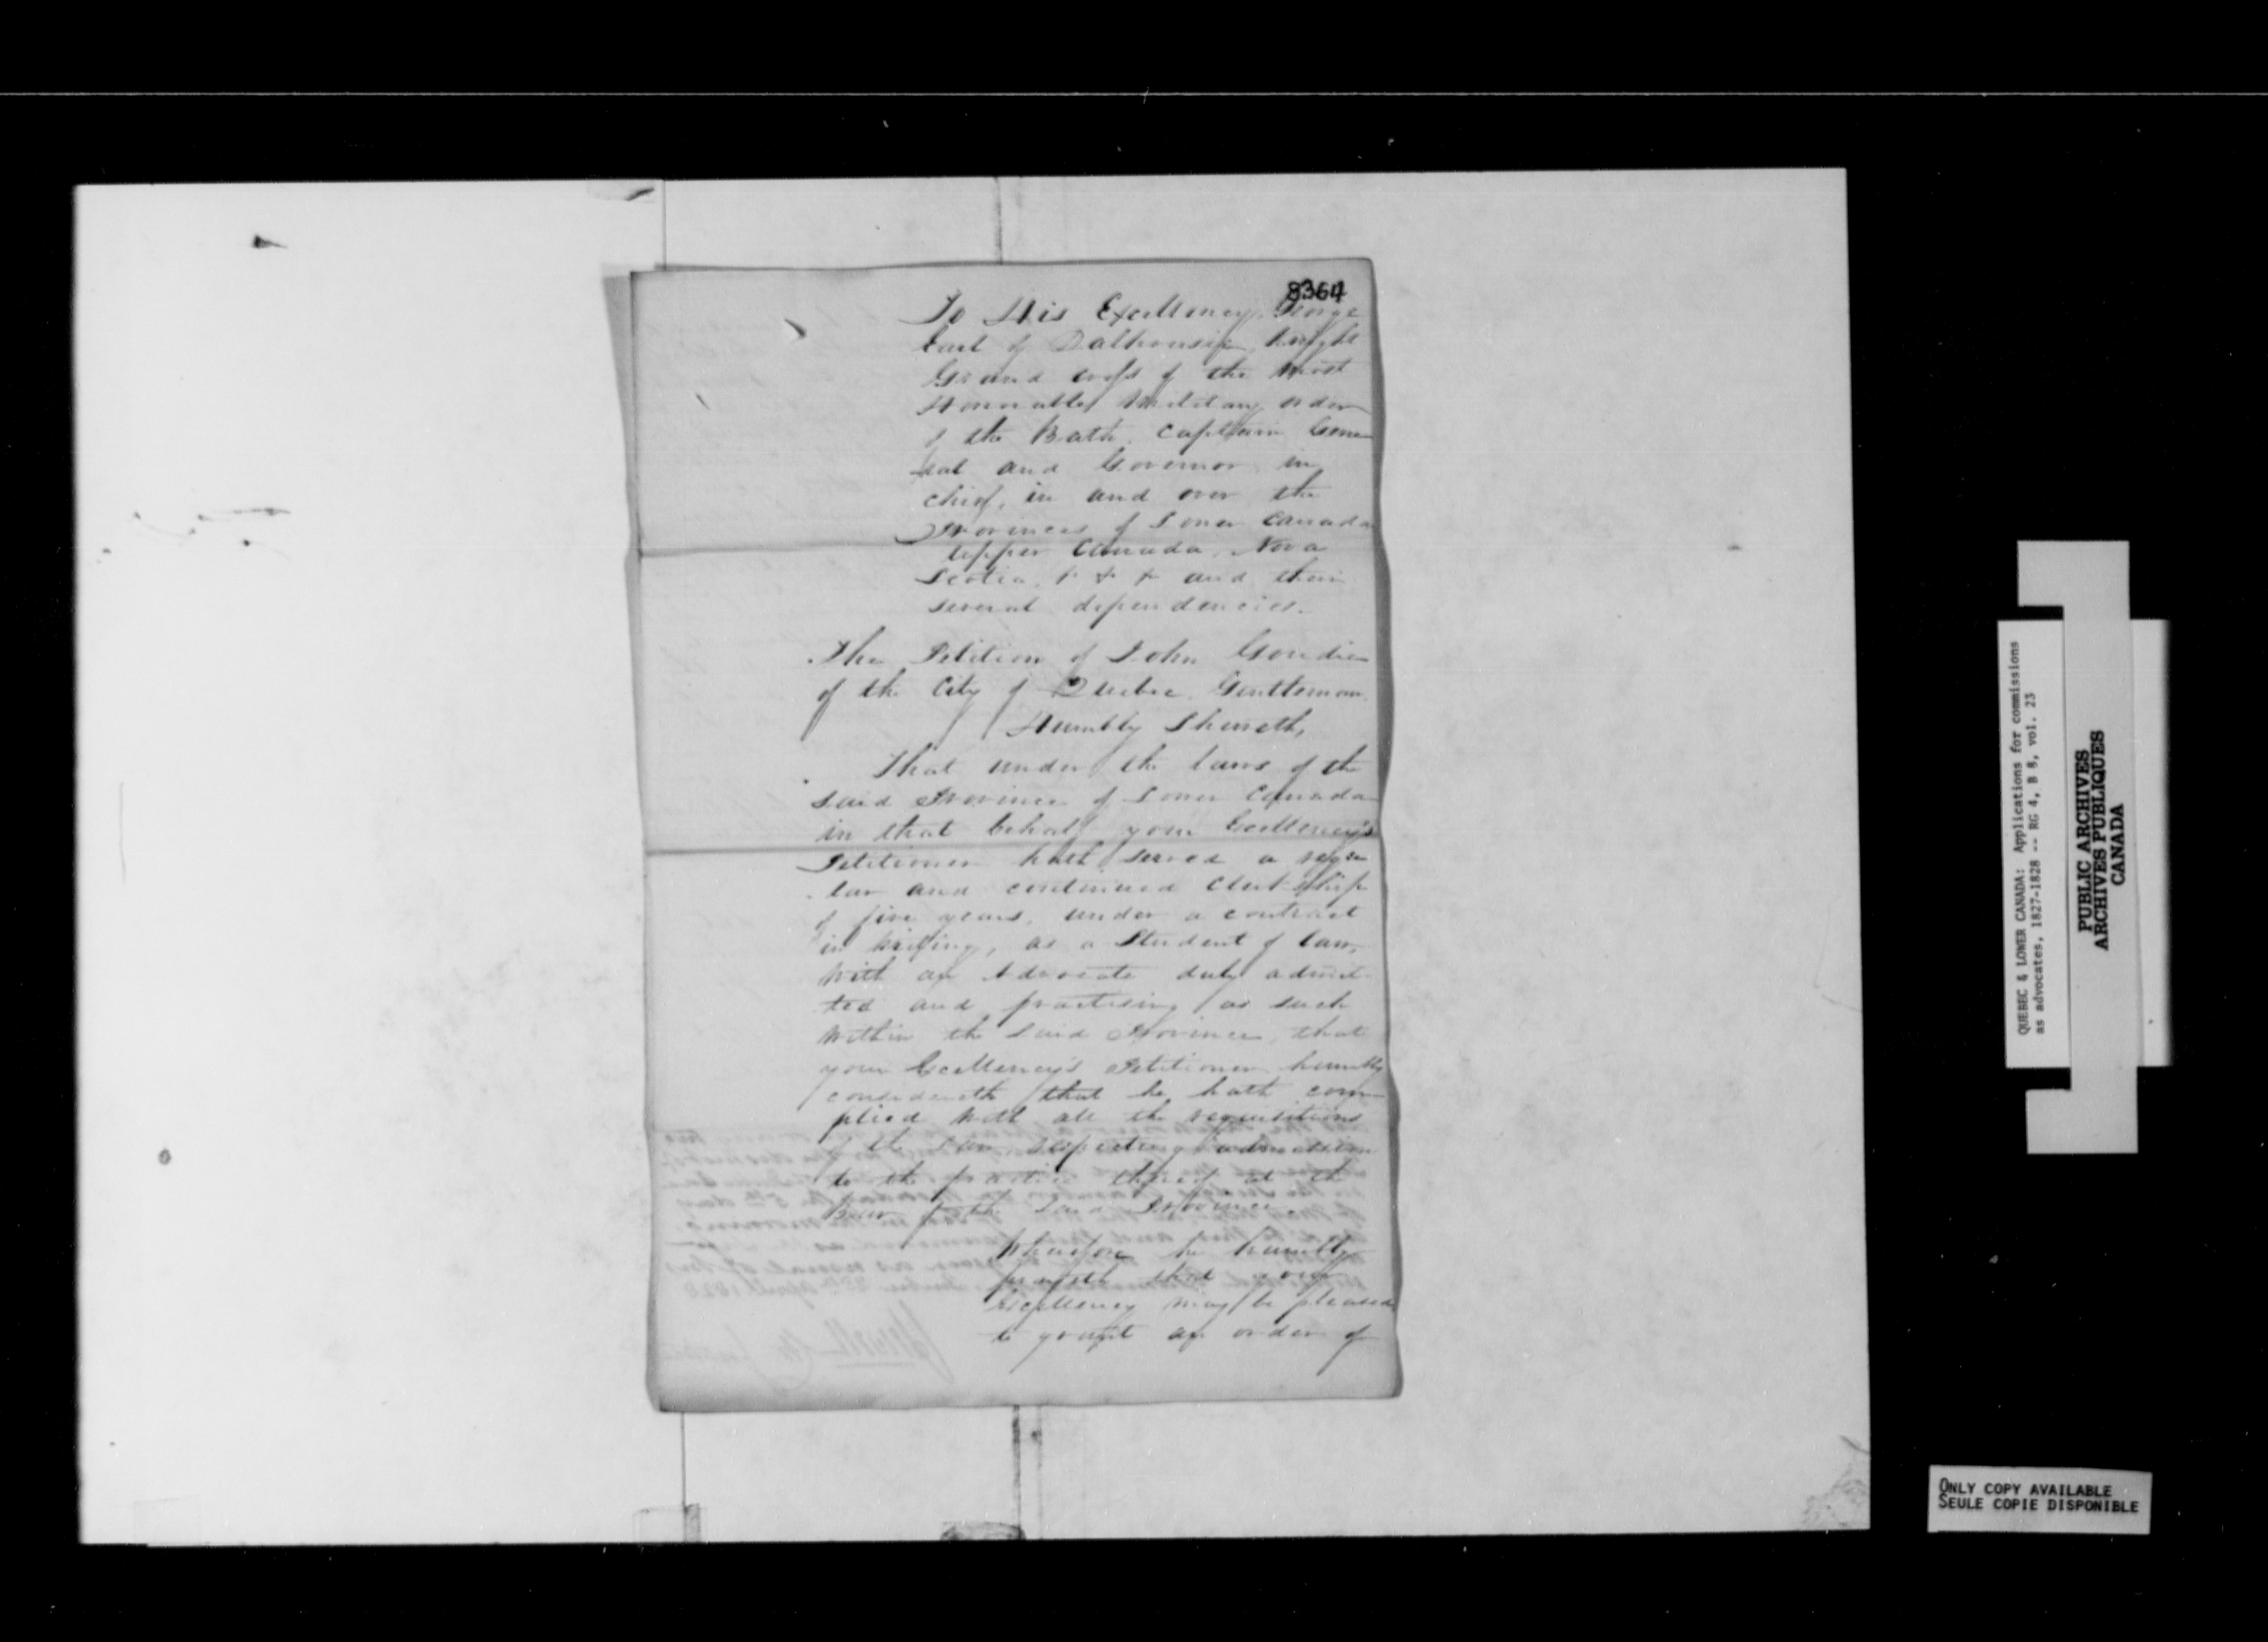 8364
To His Excellency George
Earl of Dalhousie, Knight
Grand cross of the Most
Honorable Military order
of the Bath, Captain Gene
ral and Governor in
chief, in and over the
Provinces of Lower Canada
Upper Canada, Nova
Scotia, & & & and their
several dependencies.
The Petition of John Goudie
of the City of Quebec, Gentleman.
Humbly Sheweth,
That under the laws of the
said Province of Lower Canada
in that behalf your Excellency's
Petitioner hath served a regu
lar and continued Clerkship
of five years, under a contract
in writing, as a Student of law,
with an Advocate duly admit-
ted and practising as such
within the said Province, that
your Excellency's Petitioner humbly
considereth that he hath com-
plied with all the requisitions
of the Law, respecting admission
to the practice thereof at the
Bar of the said Province.
Wherefore he humbly
prayeth that your
Excellency may be pleased
to grant an order of
QUEBEC & LOWER CANADA: Applications for commissions
as advocates, 1827-1828 -- RG 4, B 8, vol. 23
PUBLIC ARCHIVES
ARCHIVES PUBLIQUES
CANADA
ONLY COPY AVAILABLE
SEULE COPIE DISPONIBLE